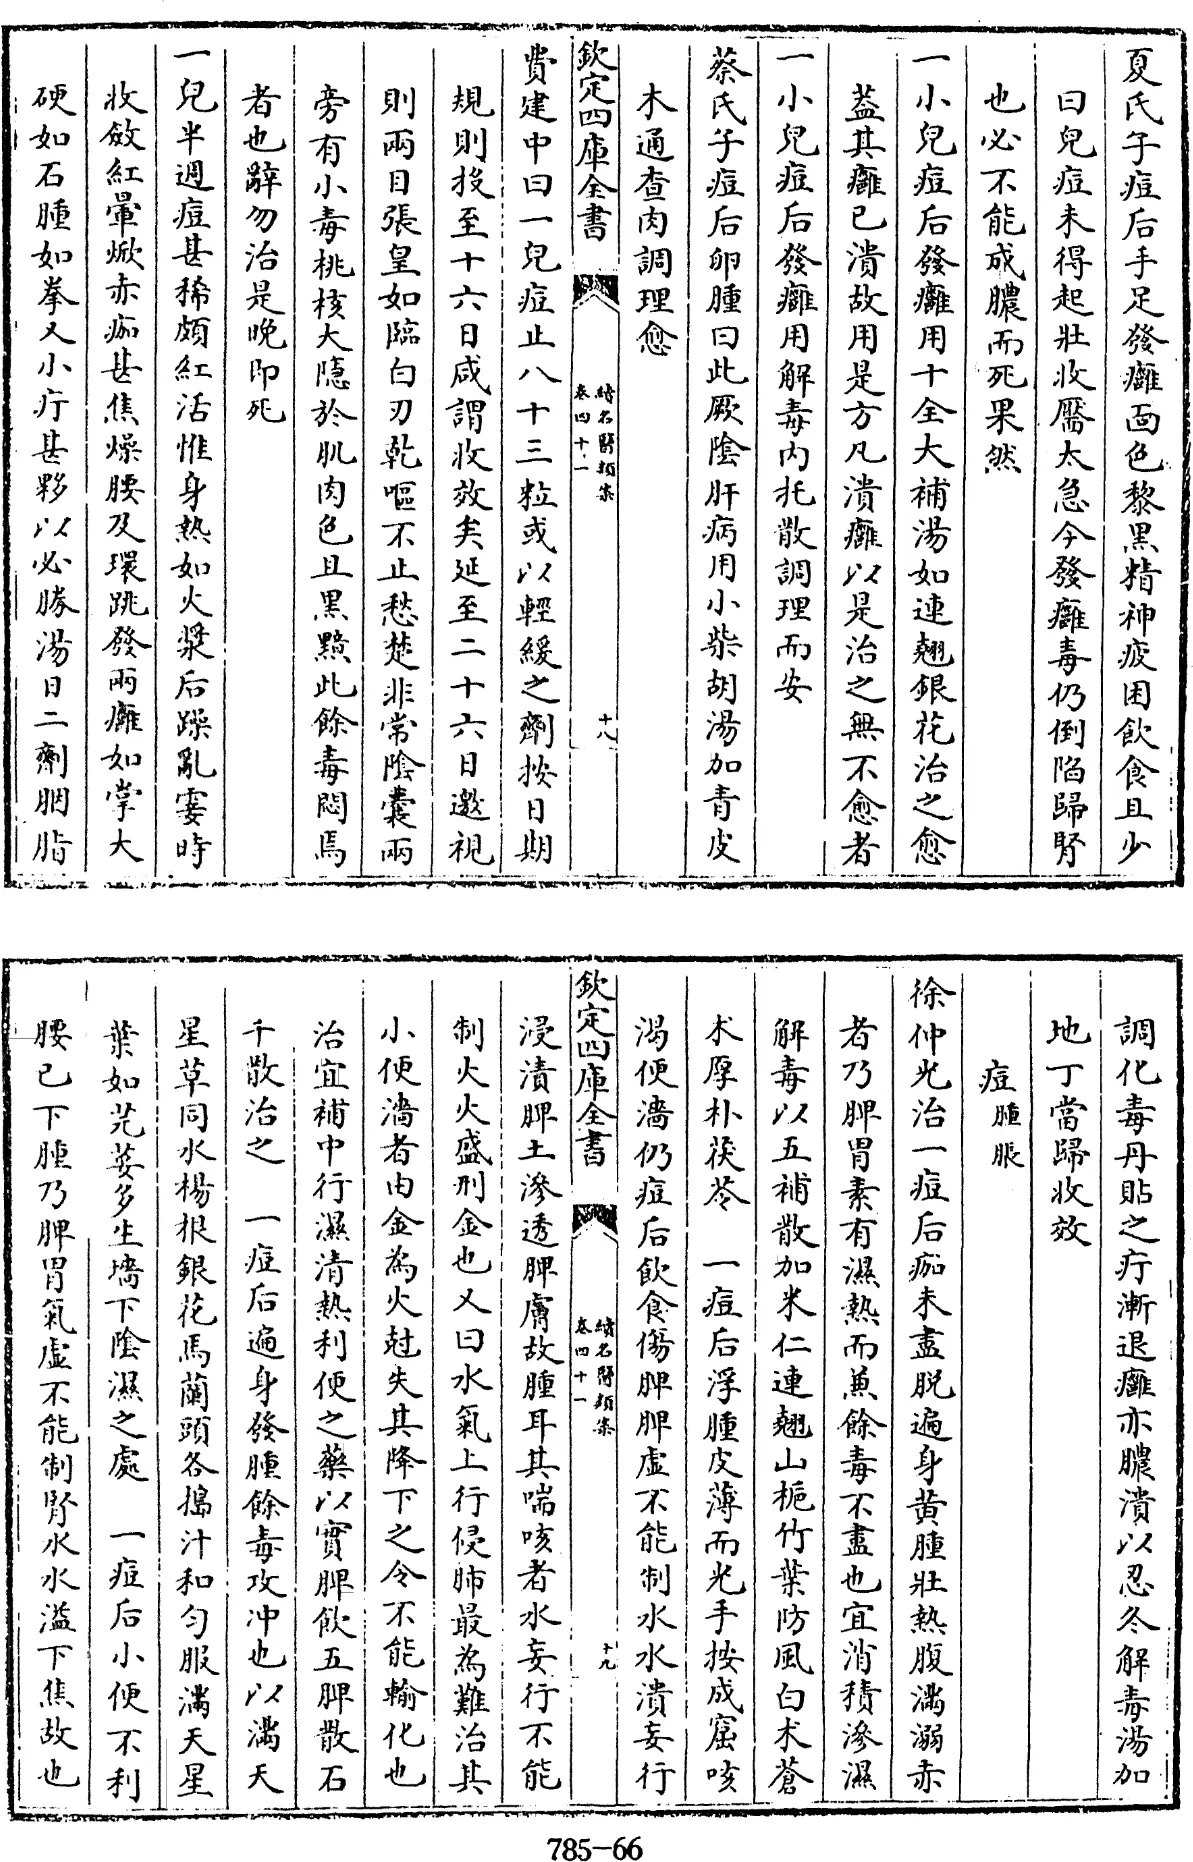 夏氏子痘后手足發癰面色黎黑精神疲困飲食且少
曰兒痘未得起壯收靨太急今發癰毒仍倒陷歸腎
也必不能成膿而死果然
一小兒痘后發癰用十全大補湯如連翹銀花治之愈
蓋其癰已潰故用是方凡潰癰以是治之無不愈者
一小兒痘后發癰用解毒内托散調理而安
蔡氏子痘后卵腫曰此厥陰肝病用小柴胡湯加青皮
木通查肉調理愈
欽定四庫全書
續名醫類案
卷四十一
十八
費建中曰一兒痘止八十三粒或以輕緩之劑按日期
規則投至十六日咸謂收效矣延至二十六日邀視
則兩目張皇如臨白刃乾嘔不止愁楚非常陰囊兩
旁有小毒桃核大隱於肌肉色且黑黯此餘毒悶焉
者也辭勿治是晚即死
一兒半週痘甚稀頗紅活惟身熱如火漿后躁亂霎時
收斂紅暈焮赤痂甚焦燥腰及環跳發兩癰如掌大
硬如石腫如拳又小疔甚夥以必勝湯日二劑胭脂
調化毒丹貼之疔漸退癰亦膿潰以忍冬解毒湯加
地丁當歸收效
痘腫脹
徐仲光治一痘后痂未盡脱遍身黄腫壯熱腹滿溺赤
者乃脾胃素有濕熱而兼餘毒不盡也宜消積滲濕
解毒以五補散加米仁連翹山梔竹葉防風白术蒼
术厚朴茯苓　一痘后浮腫皮薄而光手按成窟咳
渴便濇仍痘后飲食傷脾脾虚不能制水水漬妄行
欽定四庫全書
續名醫類案
卷四十一
十九
浸漬脾土滲透脾膚故腫耳其喘咳者水妄行不能
制火火盛刑金也又曰水氣上行侵肺最為難治其
小便濇者由金為火尅失其降下之令不能輸化也
治宜補中行濕清熱利便之藥以實脾飲五脾散石
千散治之　一痘后遍身發腫餘毒攻冲也以滿天
星草同水楊根銀花馬蘭頭各搗汁和匀服滿天星
葉如芫荽多生墻下陰濕之處　一痘后小便不利
腰已下腫乃脾胃氣虚不能制腎水水溢下焦故也
785-66